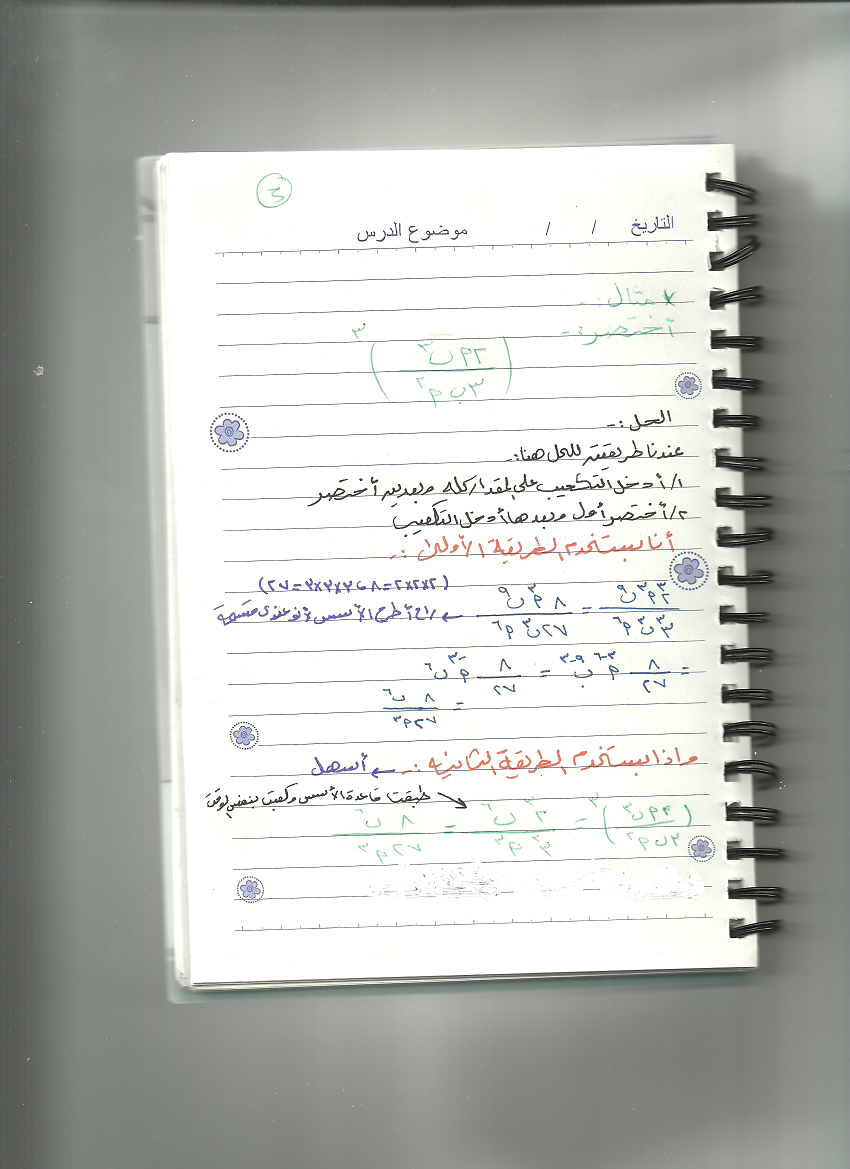 ٣
التاريخ / / موضوع الدرس
* مثال :-
أختصر :-
(٢م ن^٣ / ٣ن م^٢)^٣
الحل :-
عندنا طريقتين للحل هنا :-
١/ أدخل التكعيب على المقدار كله وبعدين أختصر
٢/ أختصر أول وبعدها أدخل التكعيب
أنا بستخدم الطريقة الأولى :-
(٢×٢×٢=٨ و ٣×٣×٣=٢٧)
٢^٣ م^٣ ن^٩ / ٣^٣ ن^٣ م^٦ = ٨ م^٣ ن^٩ / ٢٧ ن^٣ م^٦ ← راح أطرح الأسس لأنو عندي قسمة
= ٨/٢٧ م^٣-٦ ن^٩-٣ = ٨/٢٧ م^-٣ ن^٦
= ٨ ن^٦ / ٢٧ م^٣
واذا بستخدم الطريقة الثانية :- ← أسهل
طبقت قاعدة الأسس وكعبت بنفس الوقت
(٢م ن^٣ / ٣ن م^٢)^٣ = ٢^٣ ن^٦ / ٣^٣ م^٣ = ٨ ن^٦ / ٢٧ م^٣